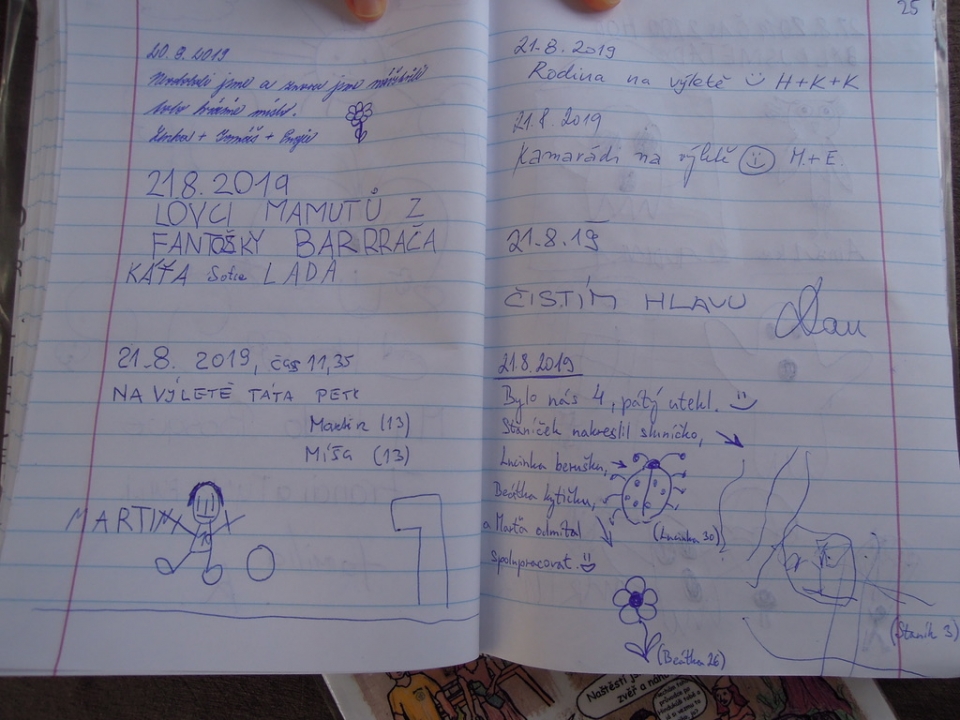 20.8.2019
Nevěděli jsme a znovu jsme navštívili
toto krásné místo.
Lenka + Tomáš +
21.8.2019
LOVCI MAMUTŮ Z
FANTOŠKY BARRRAČA
KÁŤA Sofie LADA
21.8. 2019, čas 11,35
NA VÝLETĚ TÁTA PETR
Martin (13)
Míša (13)
MARTIN
25
21.8.2019
Rodina na výletě H+K+K
21.8.2019
Kamarádi na výletě M.+E.
21.8.19
ČISTÍM HLAVU Dan
21.8.2019
Bylo nás 4, pátý utekl.
Staníček nakreslil sluníčko,
Lucinka berušku,
Beátka kytičku,
a Marťa odmítal
spolupracovat.
(Lucinka 30)
(Staník 3)
(Beátka 26)
Naštěstí
zvěř a